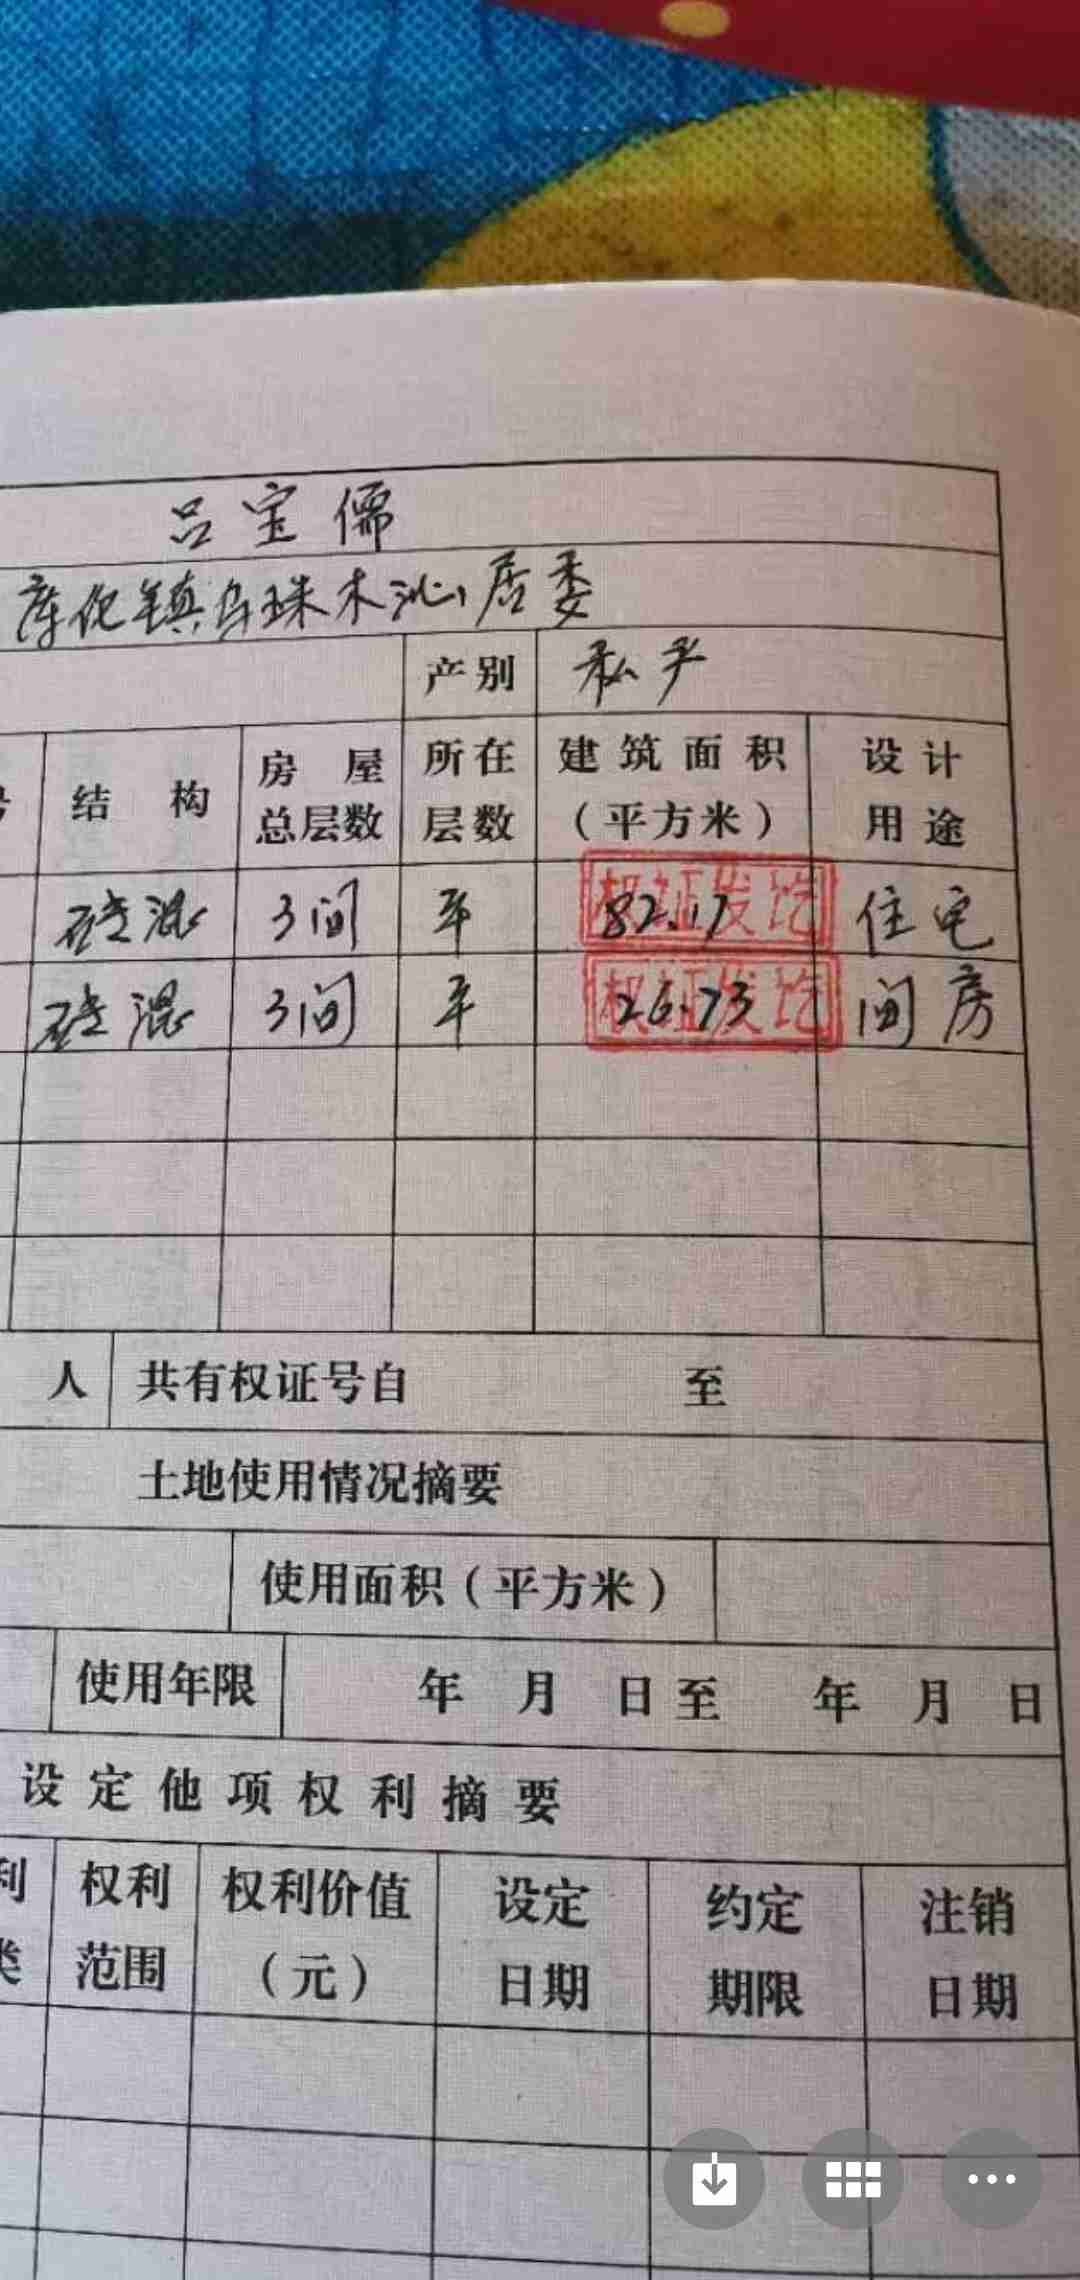 吕宝儒
库伦镇乌珠木沁居委
产别 私产
结构 房屋总层数 所在层数 建筑面积(平方米) 设计用途
砖混 3间 平 82.17 住宅
权证发讫
砖混 3间 平 26.73 间房
权证发讫
人 共有权证号自 至
土地使用情况摘要
使用面积(平方米)
使用年限 年 月 日至 年 月 日
设定他项权利摘要
权利范围 权利价值(元) 设定日期 约定期限 注销日期